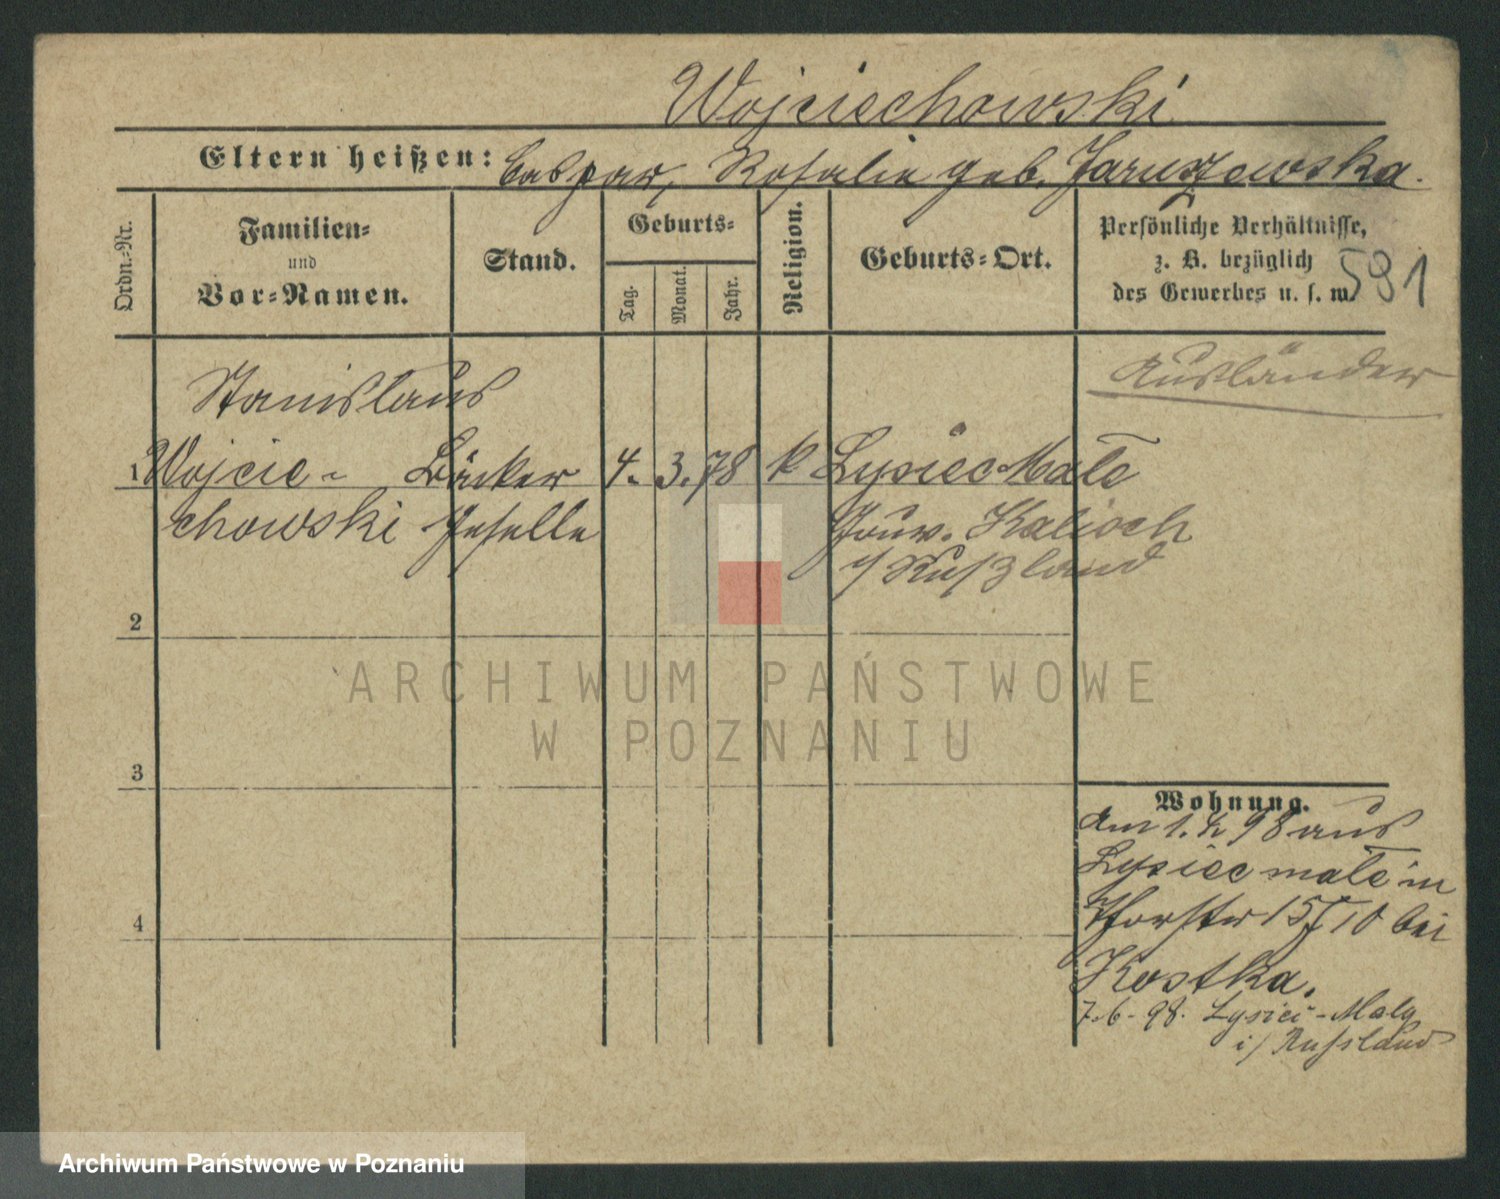 Wojciechowski
Eltern heißen: Caspar, Rosalie geb. Jaruszewska.
Ordn.-Nr.
Familien-
und
Vor-Namen.
Stand.
Geburts-
Tag.
Monat.
Jahr.
Religion.
Geburts-Ort.
Persönliche Verhältnisse,
z. B. bezüglich
des Gewerbes u. s. w.
591
Ausländer
Stanislaus
1 Wojcie- Bäcker 4. 3. 78 k Lysiec Male
chowski Geselle Gouv. Kalisch
i/ Rußland
2
3
4
Wohnung.
Am 1. 98 aus
Lysiec male in
15 10 bei
Kostka.
7.-6-98. Lysiec-Maly
i/ Russland
ARCHIWUM PAŃSTWOWE
W POZNANIU
Archiwum Państwowe w Poznaniu